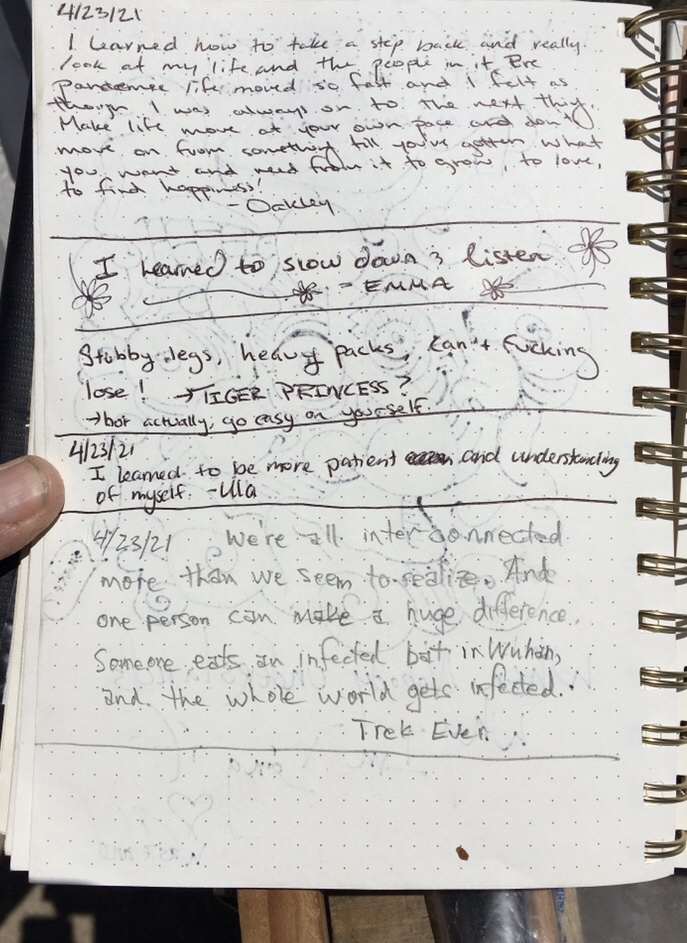 4/23/21
I learned how to take a step back and really
look at my life and the people in it Pre
pandemic life moved so fast and I felt as
though I was always on to the next thing.
Make life move at your own pace and don't
move on from something till you've gotten what
you want and need from it to grow, to love,
to find happiness!
- Oakley
I learned to slow down & listen
- EMMA
Stubby legs, heavy packs, can't fucking
lose! → TIGER PRINCESS?
→ but actually, go easy on yourself.
4/23/21
I learned to be more patient and understanding
of myself. - Ula
4/23/21 We're all interconnected
more than we seem to realize. And
one person can make a huge difference.
Someone eats an infected bat in Wuhan,
and the whole world gets infected.
Trek Ever